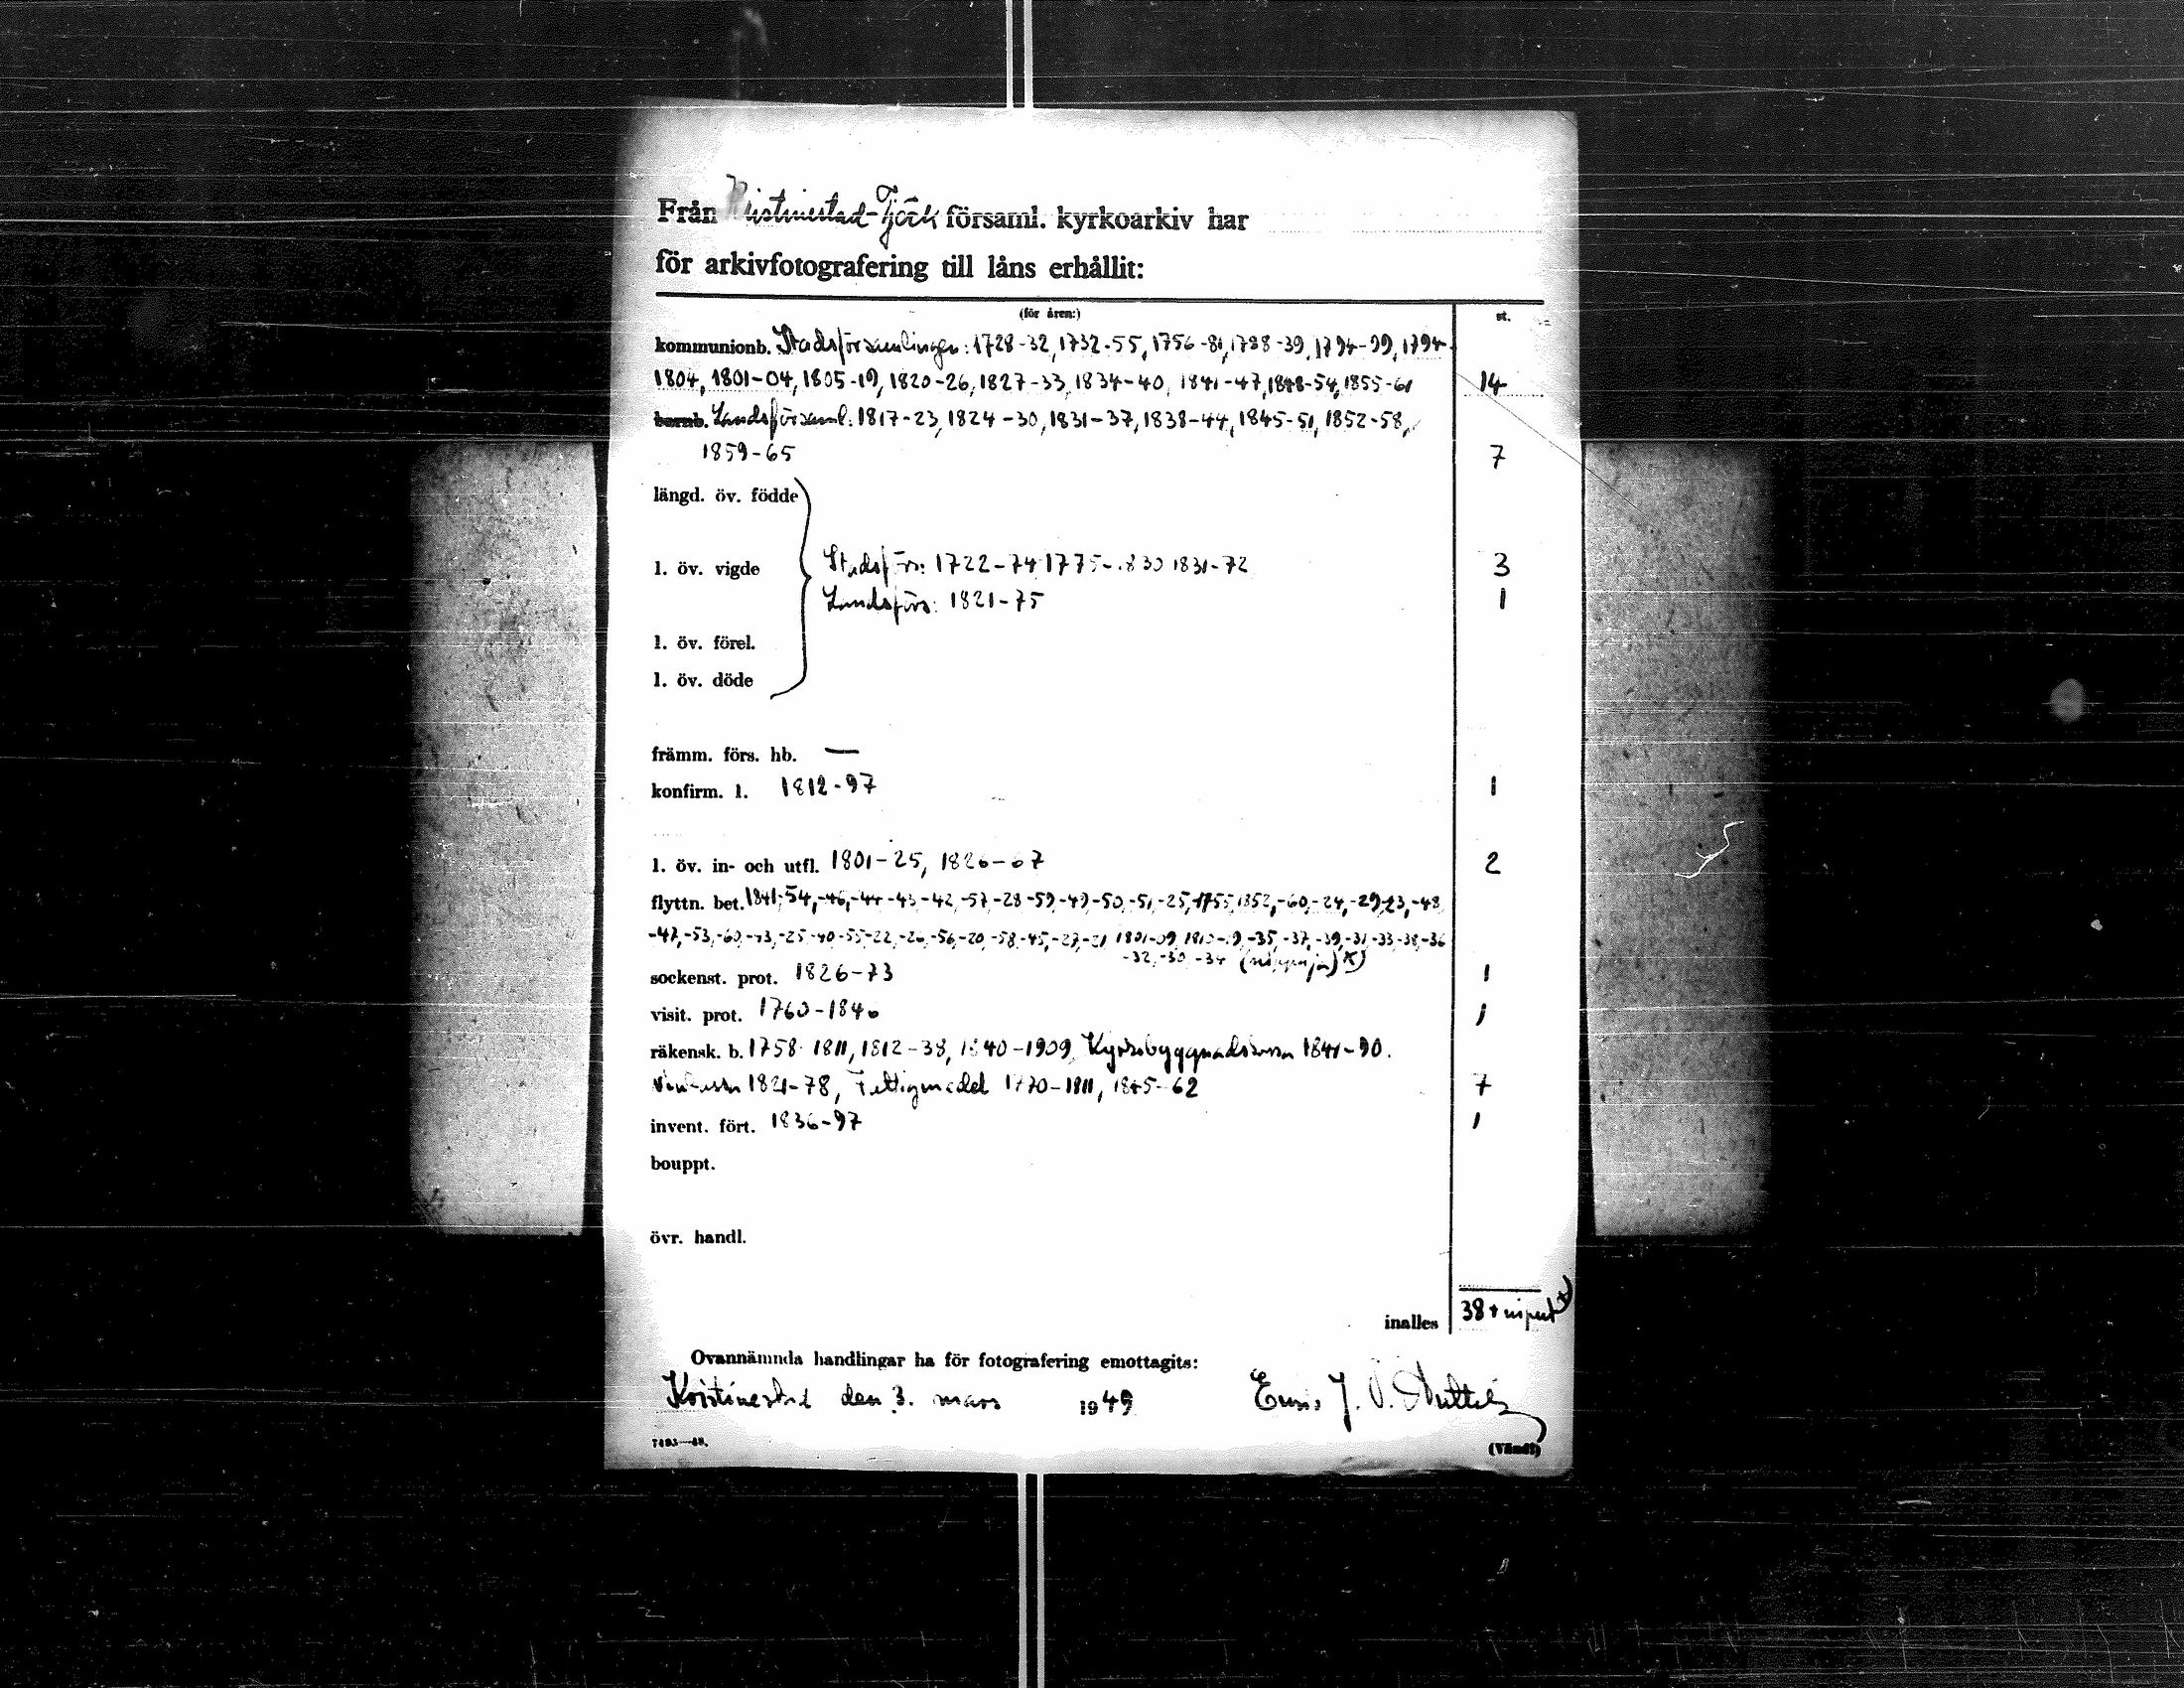 Från Kristinestad-Tjöck församl. kyrkoarkiv har
för arkivfotografering till låns erhållit:
(för åren:) st.
kommunionb. Stadsförsamlingen: 1728-32, 1732-55, 1756-81, 1788-39, 1794-99, 1794-
1804, 1801-04, 1805-19, 1820-26, 1827-33, 1834-40, 1841-47, 1848-54, 1855-61 14
barnb. Landsförsaml: 1817-23, 1824-30, 1831-37, 1838-44, 1845-51, 1852-58,
1859-65 7
längd. öv. födde
l. öv. vigde Stadsförs: 1722-74 1775-1830 1831-72 3
Landsförs: 1821-75 1
l. öv. förel.
l. öv. döde
främm. förs. hb. —
konfirm. l. 1812-97 1
l. öv. in- och utfl. 1801-25, 1826-67 2
flyttn. bet. 1841, 54, -46, -44 -43 -42, -57, -28 -59, -49, -50, -51, -25, 1755, 1852, -60, -24, -29, 23, -48
-47, -53, -60, -43, -25, -40 -55 -22, -26, -56, -20, -58, -45, -27, -21 1801-09, 1810-19, -35, -37, -39, -31, -33, -38, -36
-32, -30, -34 (nippuja) x)
sockenst. prot. 1826-73 1
visit. prot. 1760-1840 1
räkensk. b. 1758-1811, 1812-38, 1840-1909, Kyrkobyggnadskassa 1841-90.
1821-78, Fattigmedel 1770-1811, 1845-62 7
invent. fört. 1836-97 1
bouppt.
övr. handl.
inalles 38 + niput x)
Ovannämnda handlingar ha för fotografering emottagits:
Kristinestad den 3. mars 1949 J.
7493—48. (Vänd!)